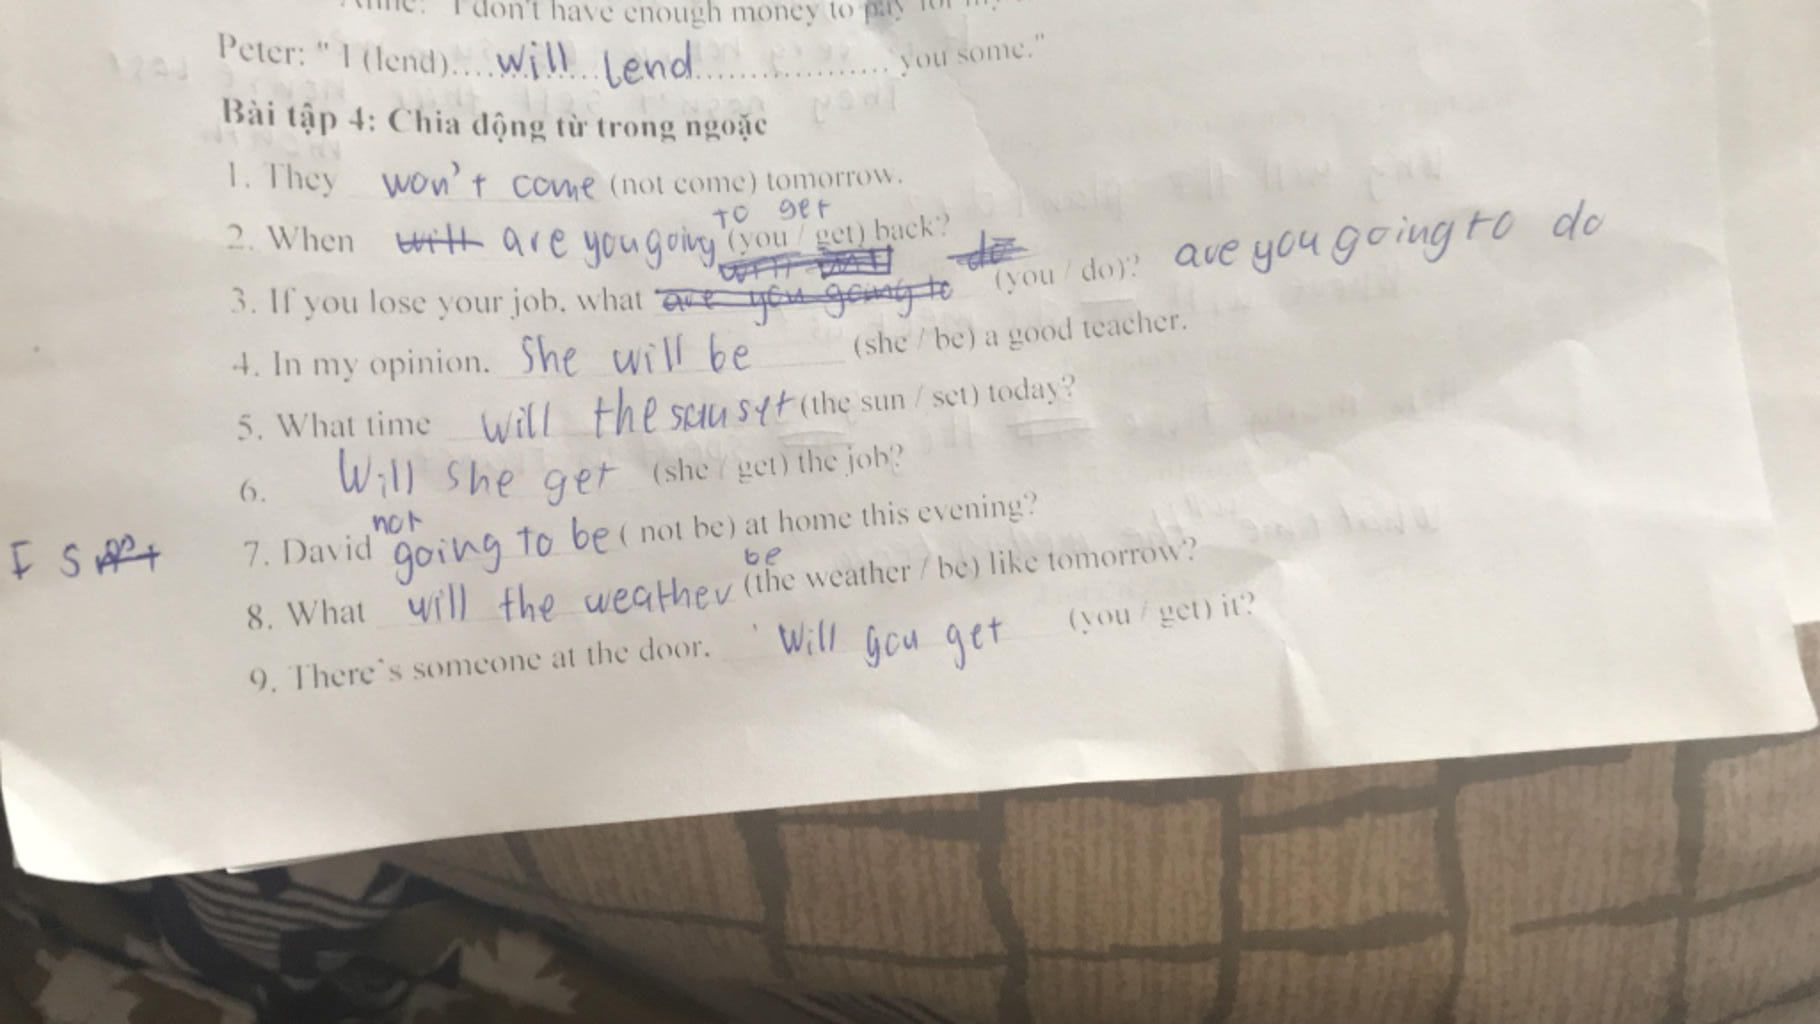 I don't have enough money to pay for my
Peter: " I (lend)....will lend.................. you some."
Bài tập 4: Chia động từ trong ngoặc
1. They won't come (not come) tomorrow.
to get
2. When will are you going (you / get) back?
3. If you lose your job, what are you going to do (you / do)? are you going to do
4. In my opinion, She will be (she / be) a good teacher.
5. What time will the sun set (the sun / set) today?
6. Will she get (she / get) the job?
not
Is 7. David going to be ( not be) at home this evening?
be
8. What will the weather (the weather / be) like tomorrow?
9. There's someone at the door. Will you get (you / get) it?